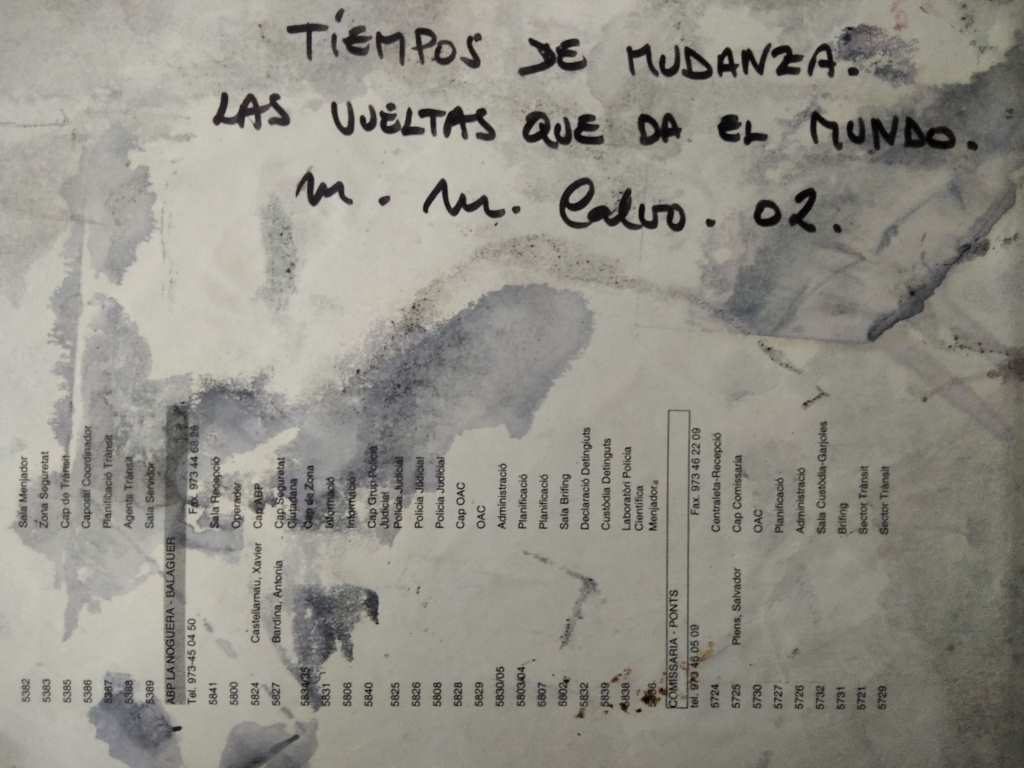 TIEMPOS DE MUDANZA.
LAS VUELTAS QUE DA EL MUNDO.
M. M. Calvo. 02.
5382 Sala Menjador
5383 Zona Seguretat
5385 Cap de Trànsit
5386 Caporal Coordinador
5387 Planificació Trànsit
5388 Agents Trànsit
5389 Sala Servidor
ABP LA NOGUERA - BALAGUER
Tel. 973-45 04 50 Fax. 973 44 68 28
5841 Sala Recepció
5800 Operador
5824 Castellarnau, Xavier Cap ABP
5827 Bardina, Antonia Cap Seguretat
Ciutadana
5834/35 Cap de Zona
5831 Informació
5806 Informació
5840 Cap Grup Policia
Judicial
5825 Policia Judicial
5826 Policia Judicial
5808 Policia Judicial
5828 Cap OAC
5829 OAC
5830/05 Administració
5803/04 Planificació
5807 Planificació
5802 Sala Brifing
5832 Declaració Detinguts
5839 Custòdia Detinguts
5838 Laboratori Policia
Científica
Menjador
COMISSARIA - PONTS
tel. 973 46 05 09 Fax. 973 46 22 09
5724 Centraleta-Recepció
5725 Plens, Salvador Cap Comissaria
5730 OAC
5727 Planificació
5726 Administració
5732 Sala Custòdia-Garjoles
5731 Brifing
5721 Sector Trànsit
5729 Sector Trànsit